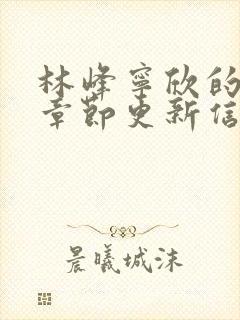 林峰宁欣的
章节更新信
晨曦城沫